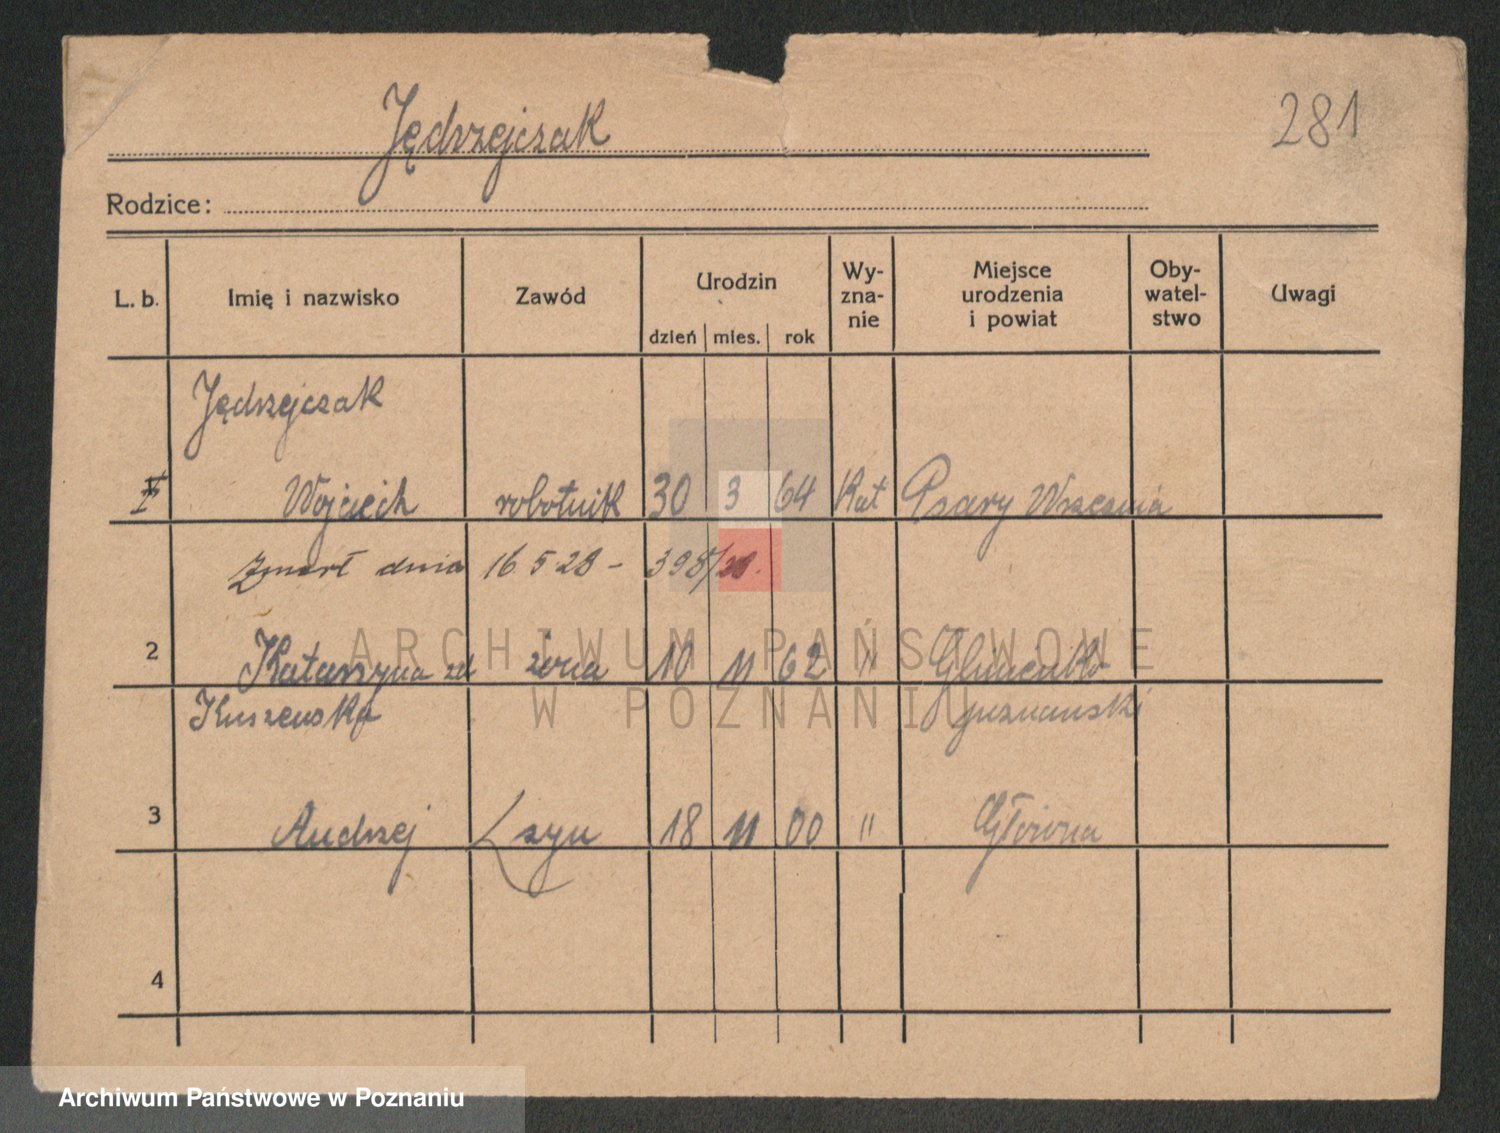 Jędrzejczak
281
Rodzice:
L. b. Imię i nazwisko Zawód Urodzin dzień mies. rok Wy-zna-nie Miejsce urodzenia i powiat Oby-watel-stwo Uwagi
Jędrzejczak
Wojciech robotnik 30 3 64 Kat Psary Września
Zmarł dnia 16.5.28 – 398/28.
2 Katarzyna zd żona 10 11 62 "
Kuszewska poznański
3 Andrzej syn 18 11 00 " Główna
4
ARCHIWUM PAŃSTWOWE
W POZNANIU
Archiwum Państwowe w Poznaniu